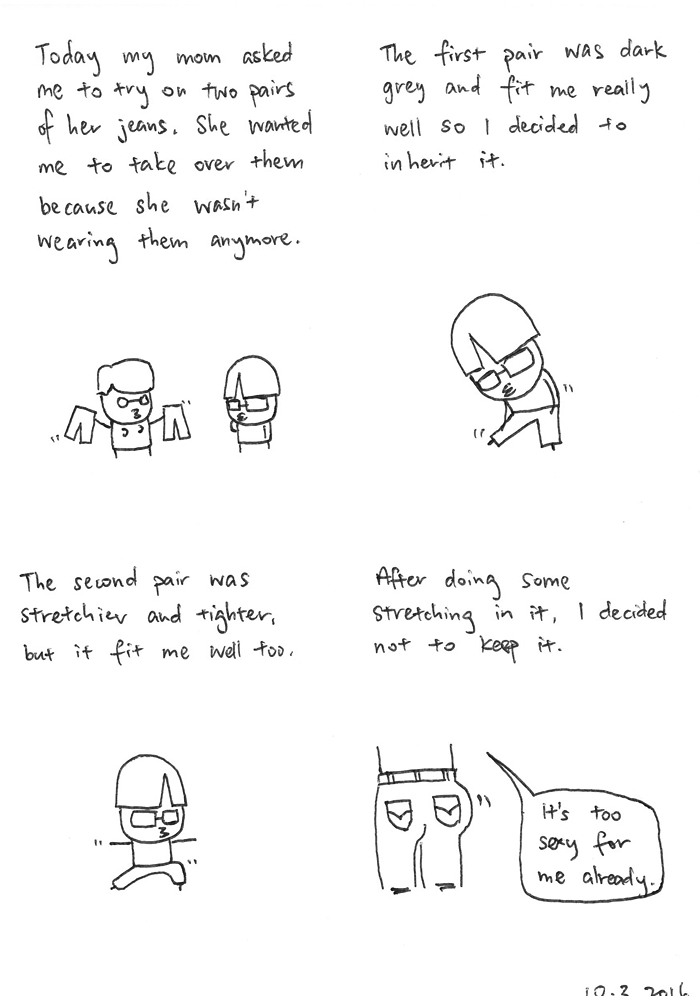 Today my mom asked
me to try on two pairs
of her jeans. She wanted
me to take over them
because she wasn't
wearing them anymore.
The first pair was dark
grey and fit me really
well so I decided to
inherit it.
The second pair was
stretchier and tighter,
but it fit me well too.
After doing some
stretching in it, I decided
not to keep it.
it's too
sexy for
me already.